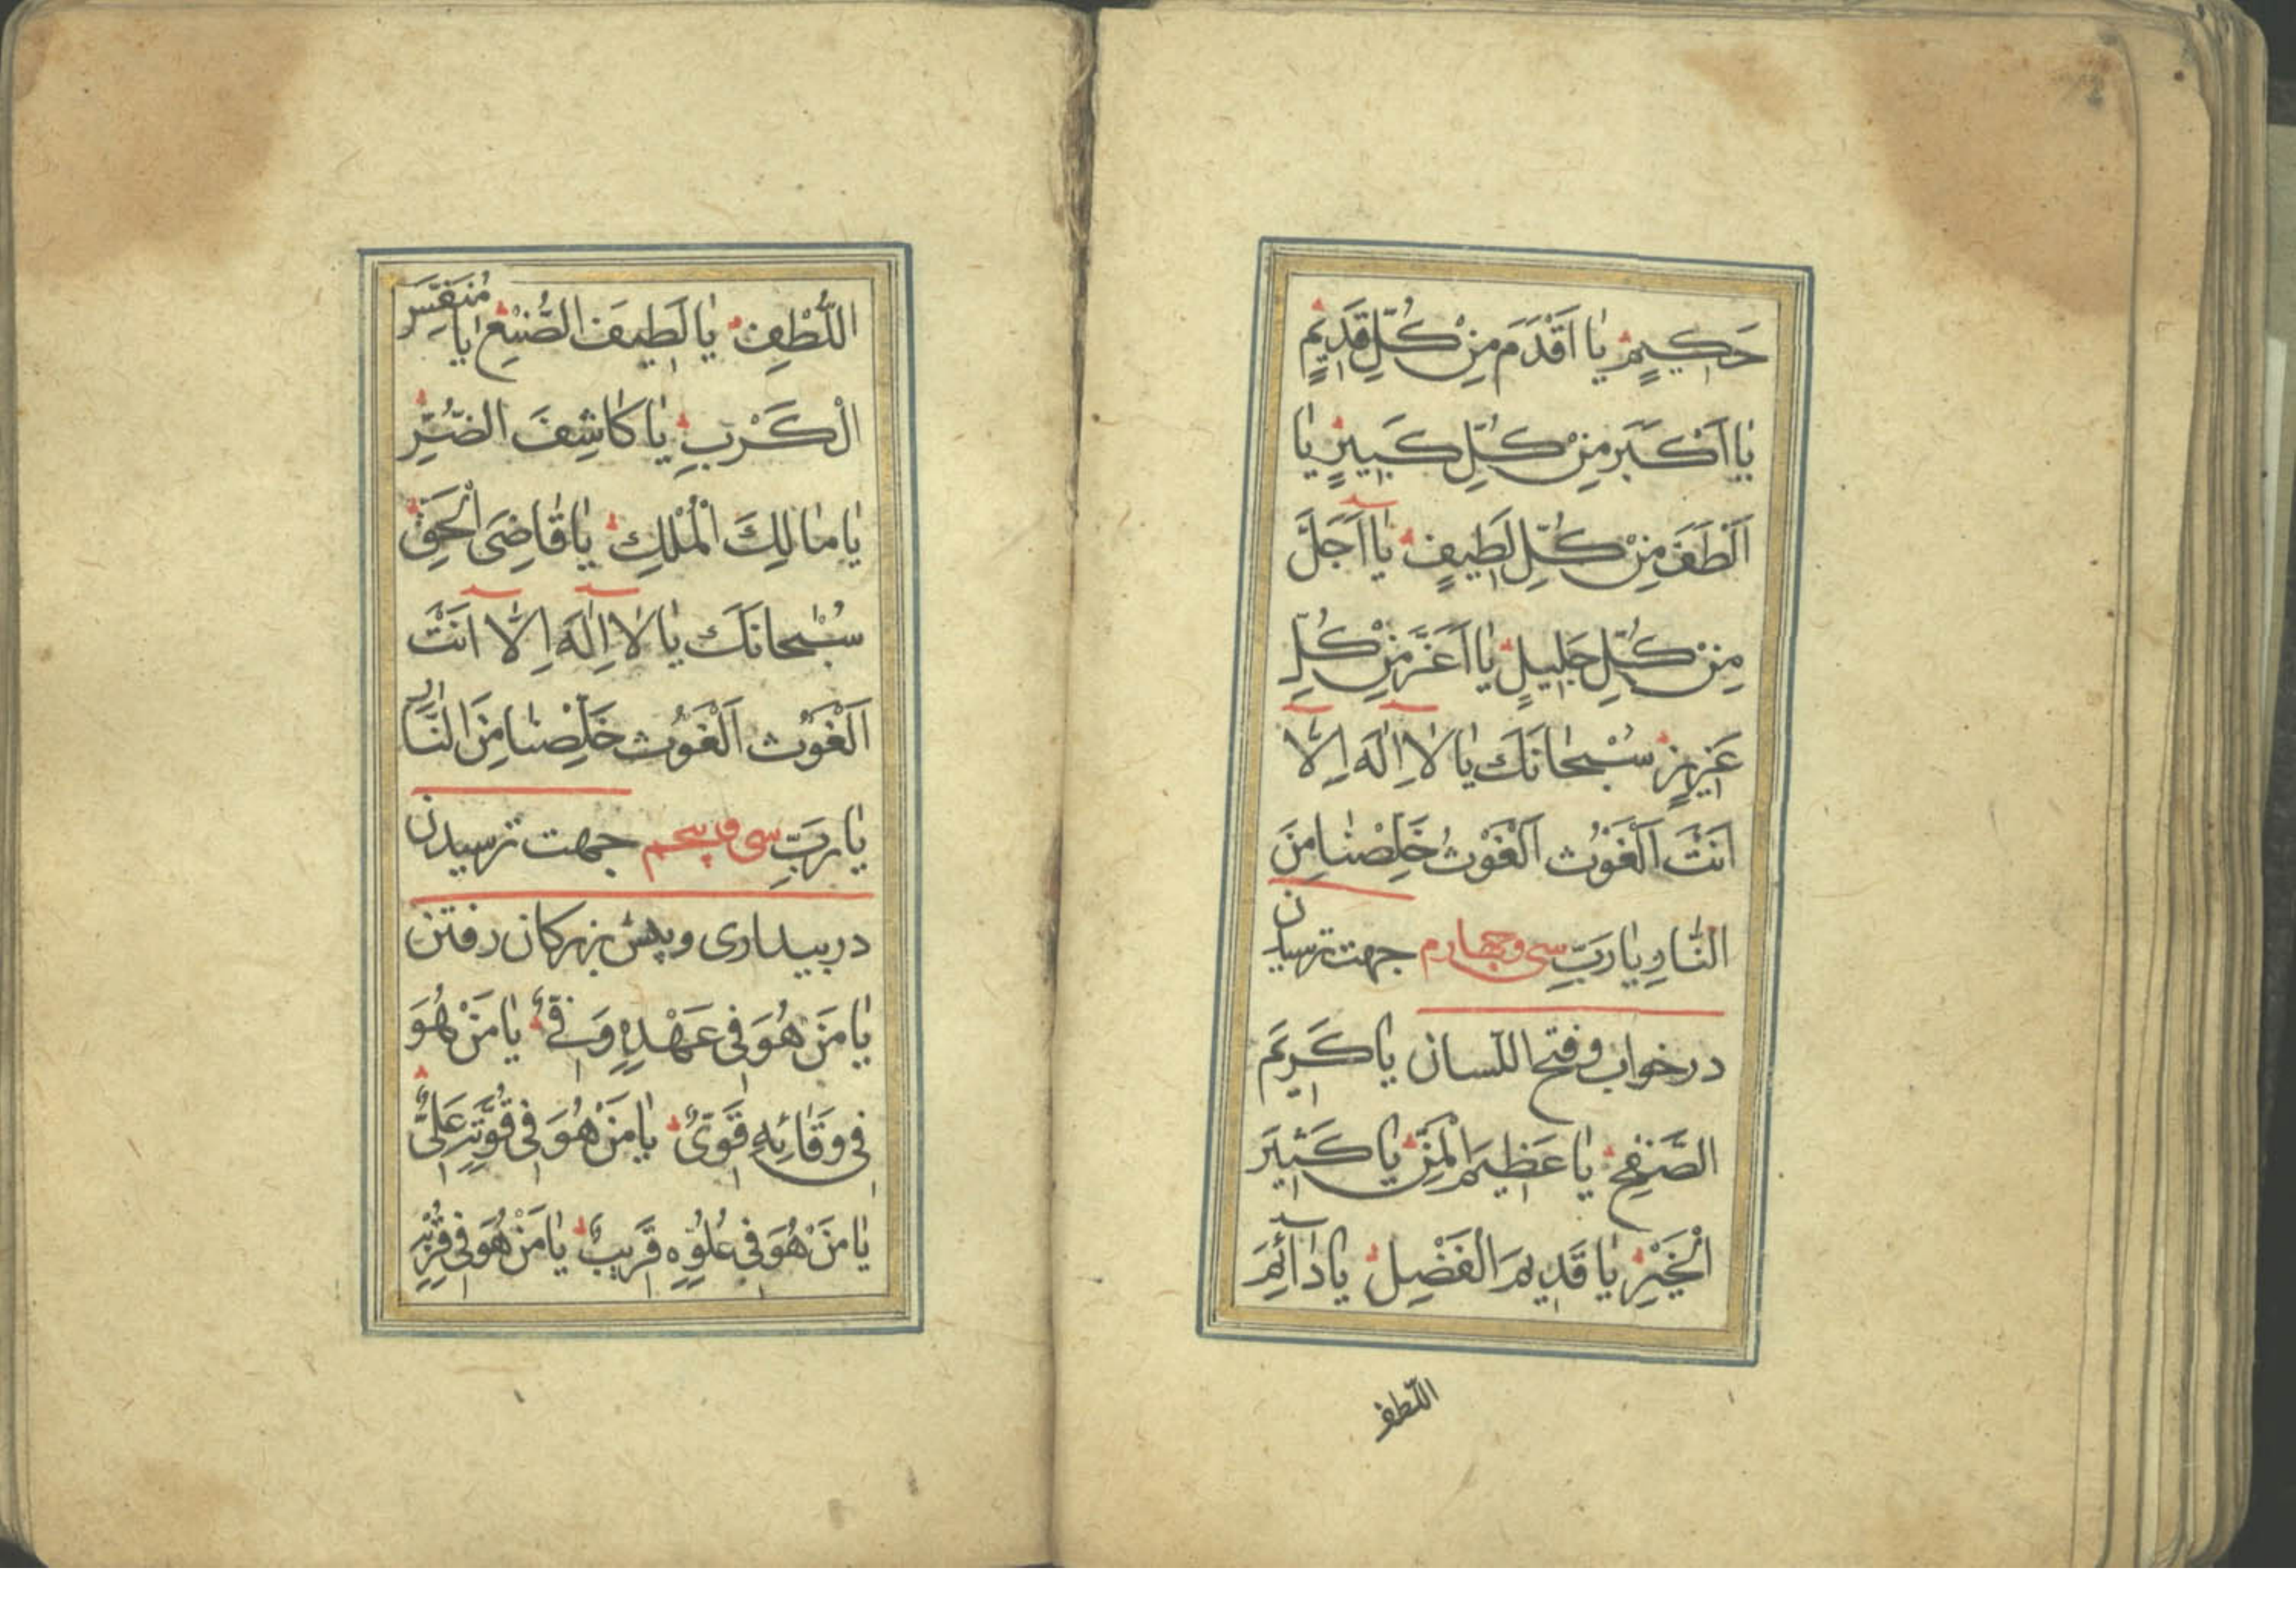 حَكيمٍ يٰا اَقْدَمَ مِنْ كُلِّ قَديمٍ
يٰا اَكْبَرَ مِنْ كُلِّ كَبيرٍ يٰا
اَلْطَفَ مِنْ كُلِّ لَطيفٍ يٰا اَجَلَّ
مِنْ كُلِّ جَليلٍ يٰا اَعَزَّ مِنْ كُلِّ
عَزيزٍ سُبْحٰانَكَ يٰا لٰا اِلٰهَ اِلّٰا
اَنْتَ اَلْغَوْث اَلْغَوْث خَلِّصْنٰا مِنَ
النّٰارِ يٰا رَبِّ سی و چهارم جهت ترسیدن
در خواب و فتح اللسان يا كَريمَ
الصَّفْحِ يٰا عَظيمَ الْمَنِّ يٰا كَثيرَ
الْخَيْرِ يٰا قَديمَ الْفَضْلِ يٰا دٰآئِمَ
اللّطف
اللُّطْفِ يٰا لَطيفَ الصُّنْعِ يٰا مُنَفِّسَ
الْكَرْبِ يٰا كٰاشِفَ الضُّرِّ
يٰا مٰالِكَ الْمُلْكِ يٰا قٰاضِىَ الْحَقِّ
سُبْحٰانَكَ يٰا لٰا اِلٰهَ اِلّٰا اَنْتَ
اَلْغَوْث اَلْغَوْث خَلِّصْنٰا مِنَ النّٰارِ
يٰا رَبِّ سی و پنجم جهت ترسیدن
در بیداری و پیش بزرکان رفتن
يٰا مَنْ هُوَ فى عَهْدِهِ وَفىٌّ يٰا مَنْ هُوَ
فى وَفٰائِهِ قَوِىٌّ يٰا مَنْ هُوَ فى قُوَّتِهِ عَلىٌّ
يٰا مَنْ هُوَ فى عُلُوِّهِ قَريبٌ يٰا مَنْ هُوَ فى قُرْبِهِ